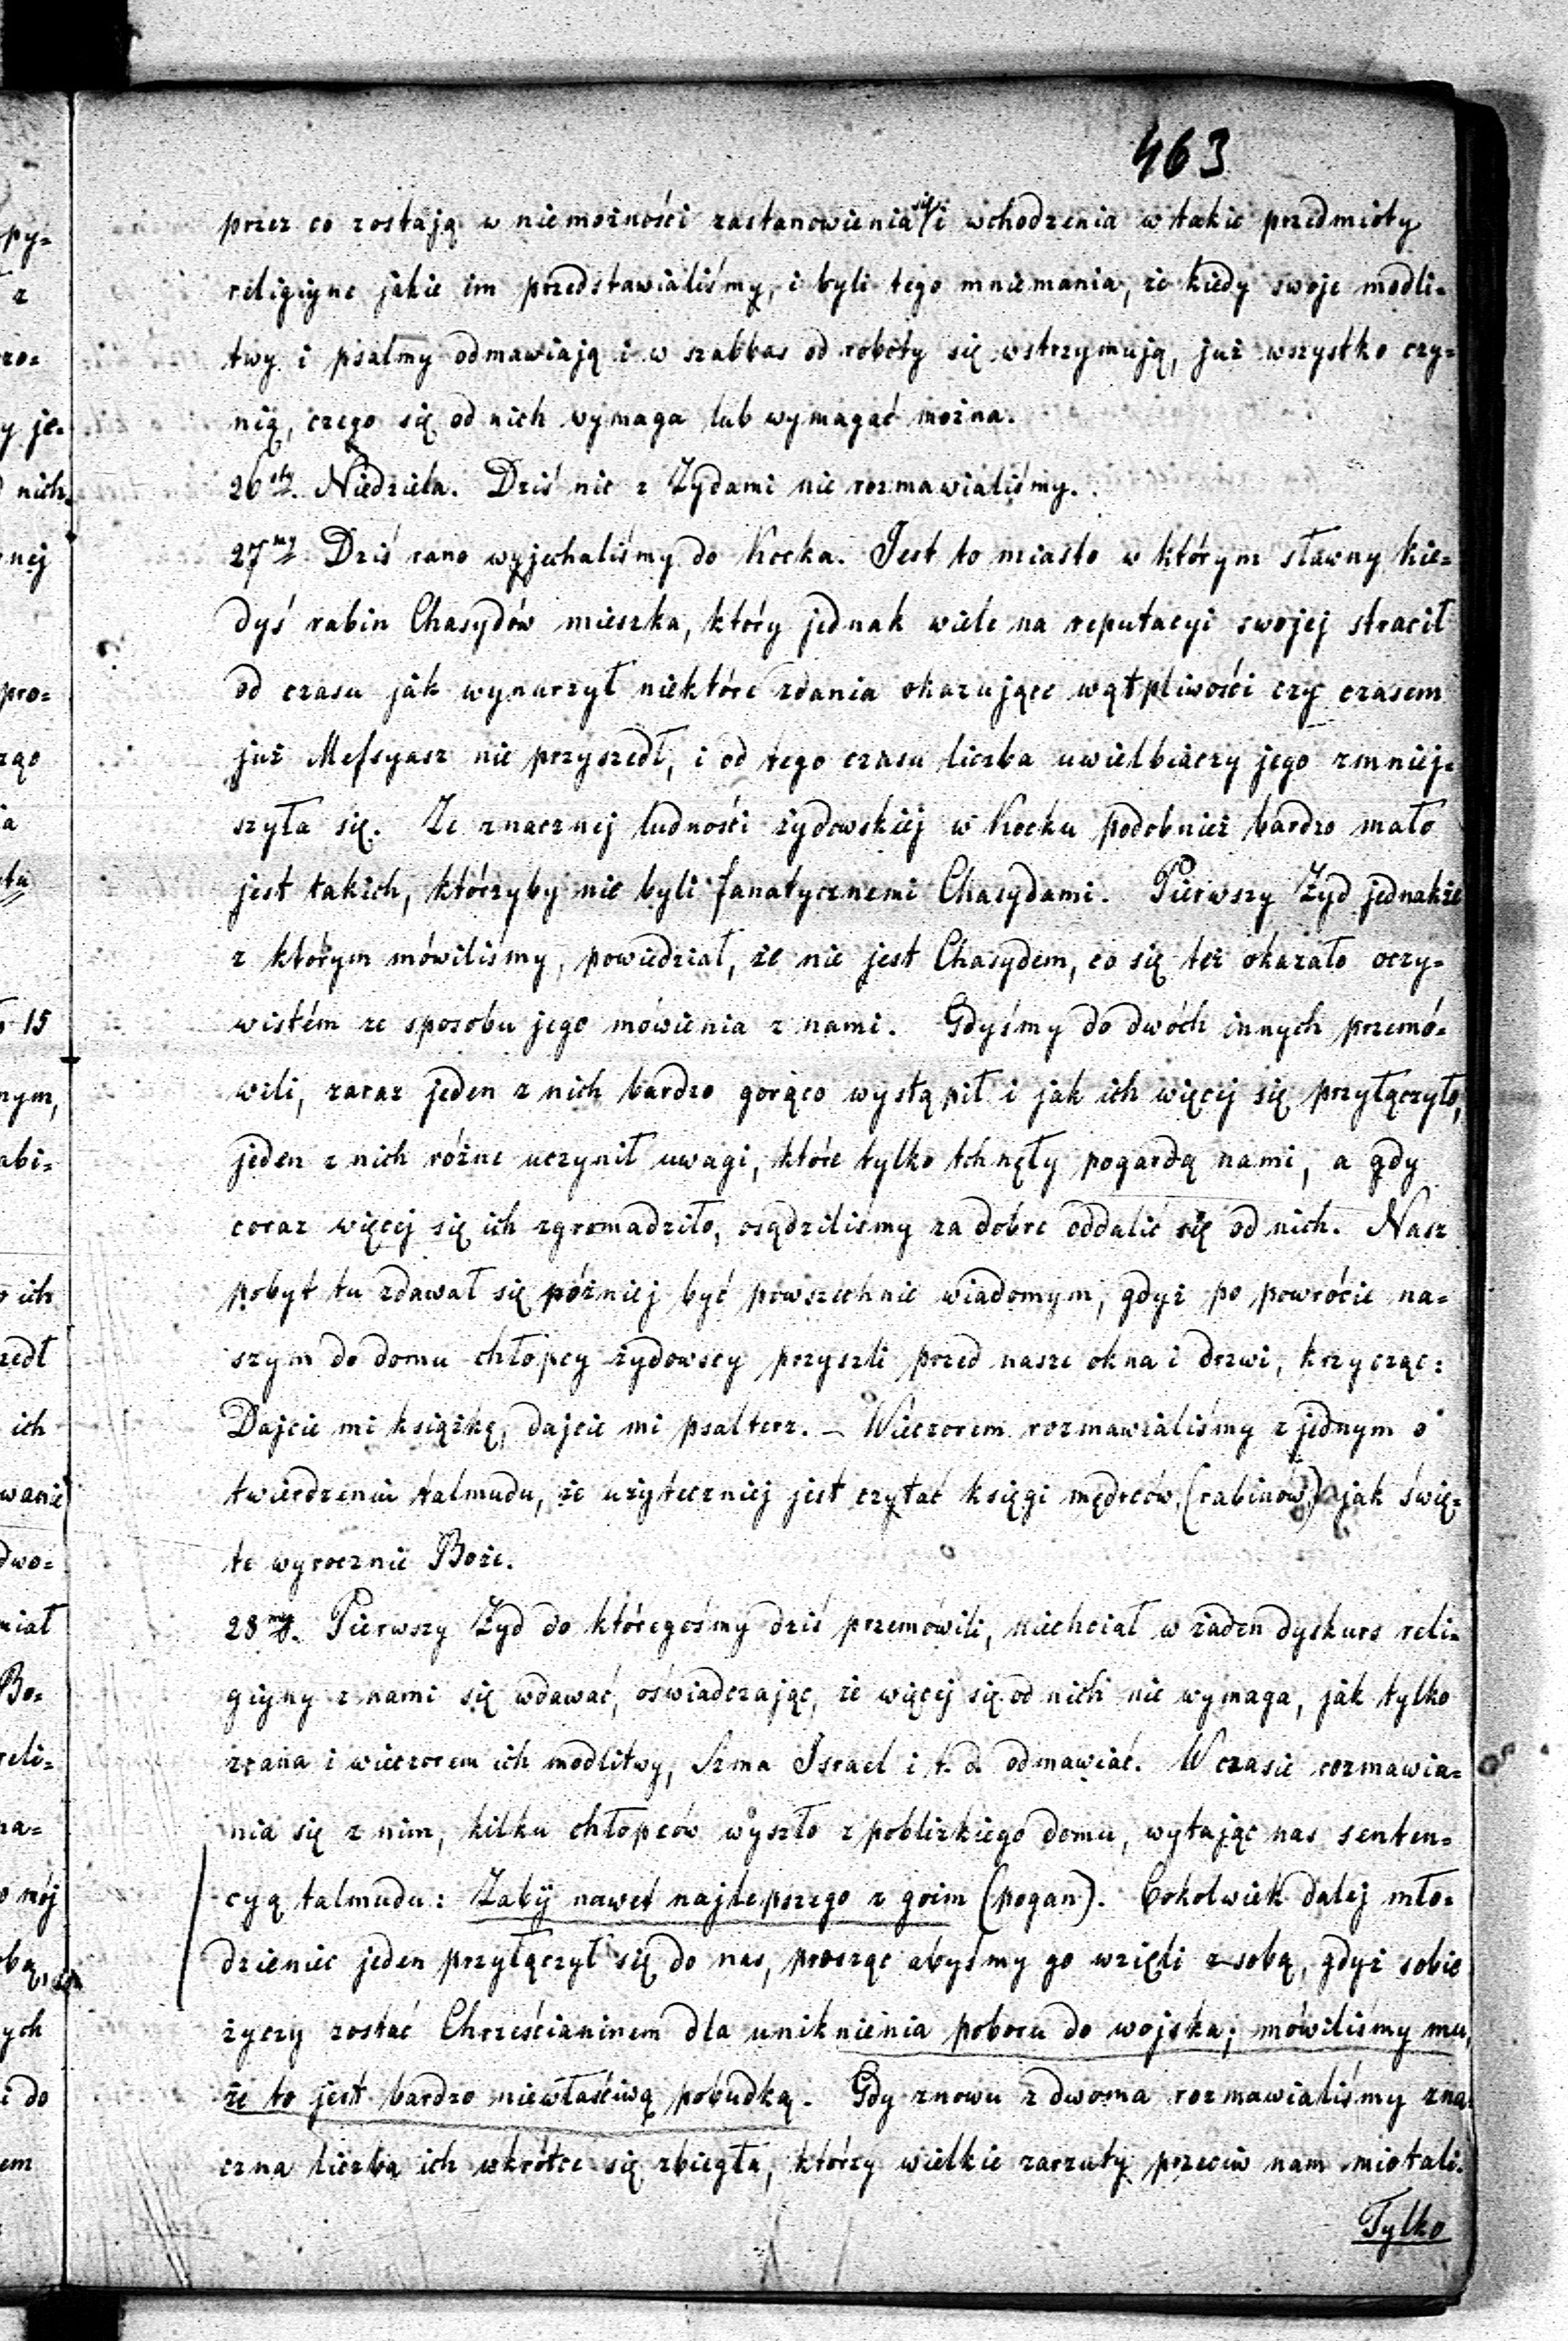 463
przez co zostają w niemożności zastanowienia się i wchodzenia w takie przedmioty
religijne jakie im przedstawialiśmy, i byli tego mniemania, że kiedy swoje modli=
twy i psalmy odmawiają i w szabbas od roboty się wstrzymują, już wszystko czy=
nią, czego się od nich wymaga lub wymagać można.
26ty. Niedziela. Dziś nic z Żydami nie rozmawialiśmy.
27my Dziś rano wyjechaliśmy do Kocka. Jest to miasto w którym sławny kie=
dyś rabin Chasydów mieszka, który jednak wiele na reputacyi swojej stracił
od czasu jak wynurzył niektóre zdania okazujące wątpliwości czy czasem
już Messyasz nie przyszedł, i od tego czasu liczba uwielbiaczy jego zmniej=
szyła się. Ze znacznej ludności żydowskiej w Kocku podobnież bardzo mało
jest takich, którzyby nie byli fanatycznemi Chasydami. Pierwszy Żyd jednakże
z którym mówiliśmy, powiedział, że nie jest Chasydem, co się też okazało oczy=
wistém ze sposobu jego mówienia z nami. Gdyśmy do dwóch innych przemó=
wili, zaraz jeden z nich bardzo gorąco wystąpił i jak ich więcej się przyłączyło,
jeden z nich różne uczynił uwagi, które tylko tchnęły pogardą nami, a gdy
coraz więcej się ich zgromadziło, osądziliśmy za dobre oddalić się od nich. Nasz
pobyt tu zdawał się później być powszechnie wiadomym, gdyż po powrócie na=
szym do domu chłopcy żydowscy przyszli przed nasze okna i drzwi, krzycząc:
Dajcie mi książkę, dajcie mi psalterz. – Wieczorem rozmawialiśmy z jednym o
twierdzeniu talmudu, że użyteczniej jest czytać księgi mędrców, (rabinów) jak świę=
te wyrocznie Boże.
28my. Pierwszy Żyd do któregośmy dziś przemówili, niechciał w żaden dyskurs reli=
giyny z nami się wdawać, oświadczając, że więcej się od nich nie wymaga, jak tylko
zrana i wieczorem ich modlitwy, Szma Israel i t. d. odmawiać. W czasie rozmawia=
nia się z nim, kilku chłopców wyszło z poblizkiego domu, wytając nas senten=
cyą talmudu: Zabij nawet najlepszego z goim (pogan). Cokolwiek dalej mło=
dzieniec jeden przyłączył się do nas, prosząc abyśmy go wzięli z sobą, gdyż sobie
życzy zostać Chrześcianinem dla uniknienia poboru do wojska; mówiliśmy mu,
że to jest bardzo niewłaściwą pobudką. Gdy znowu z dwoma rozmawialiśmy zna=
czna liczba ich wkrótce się zbiegła, którzy wielkie zarzuty przeciw nam miotali.
Tylko